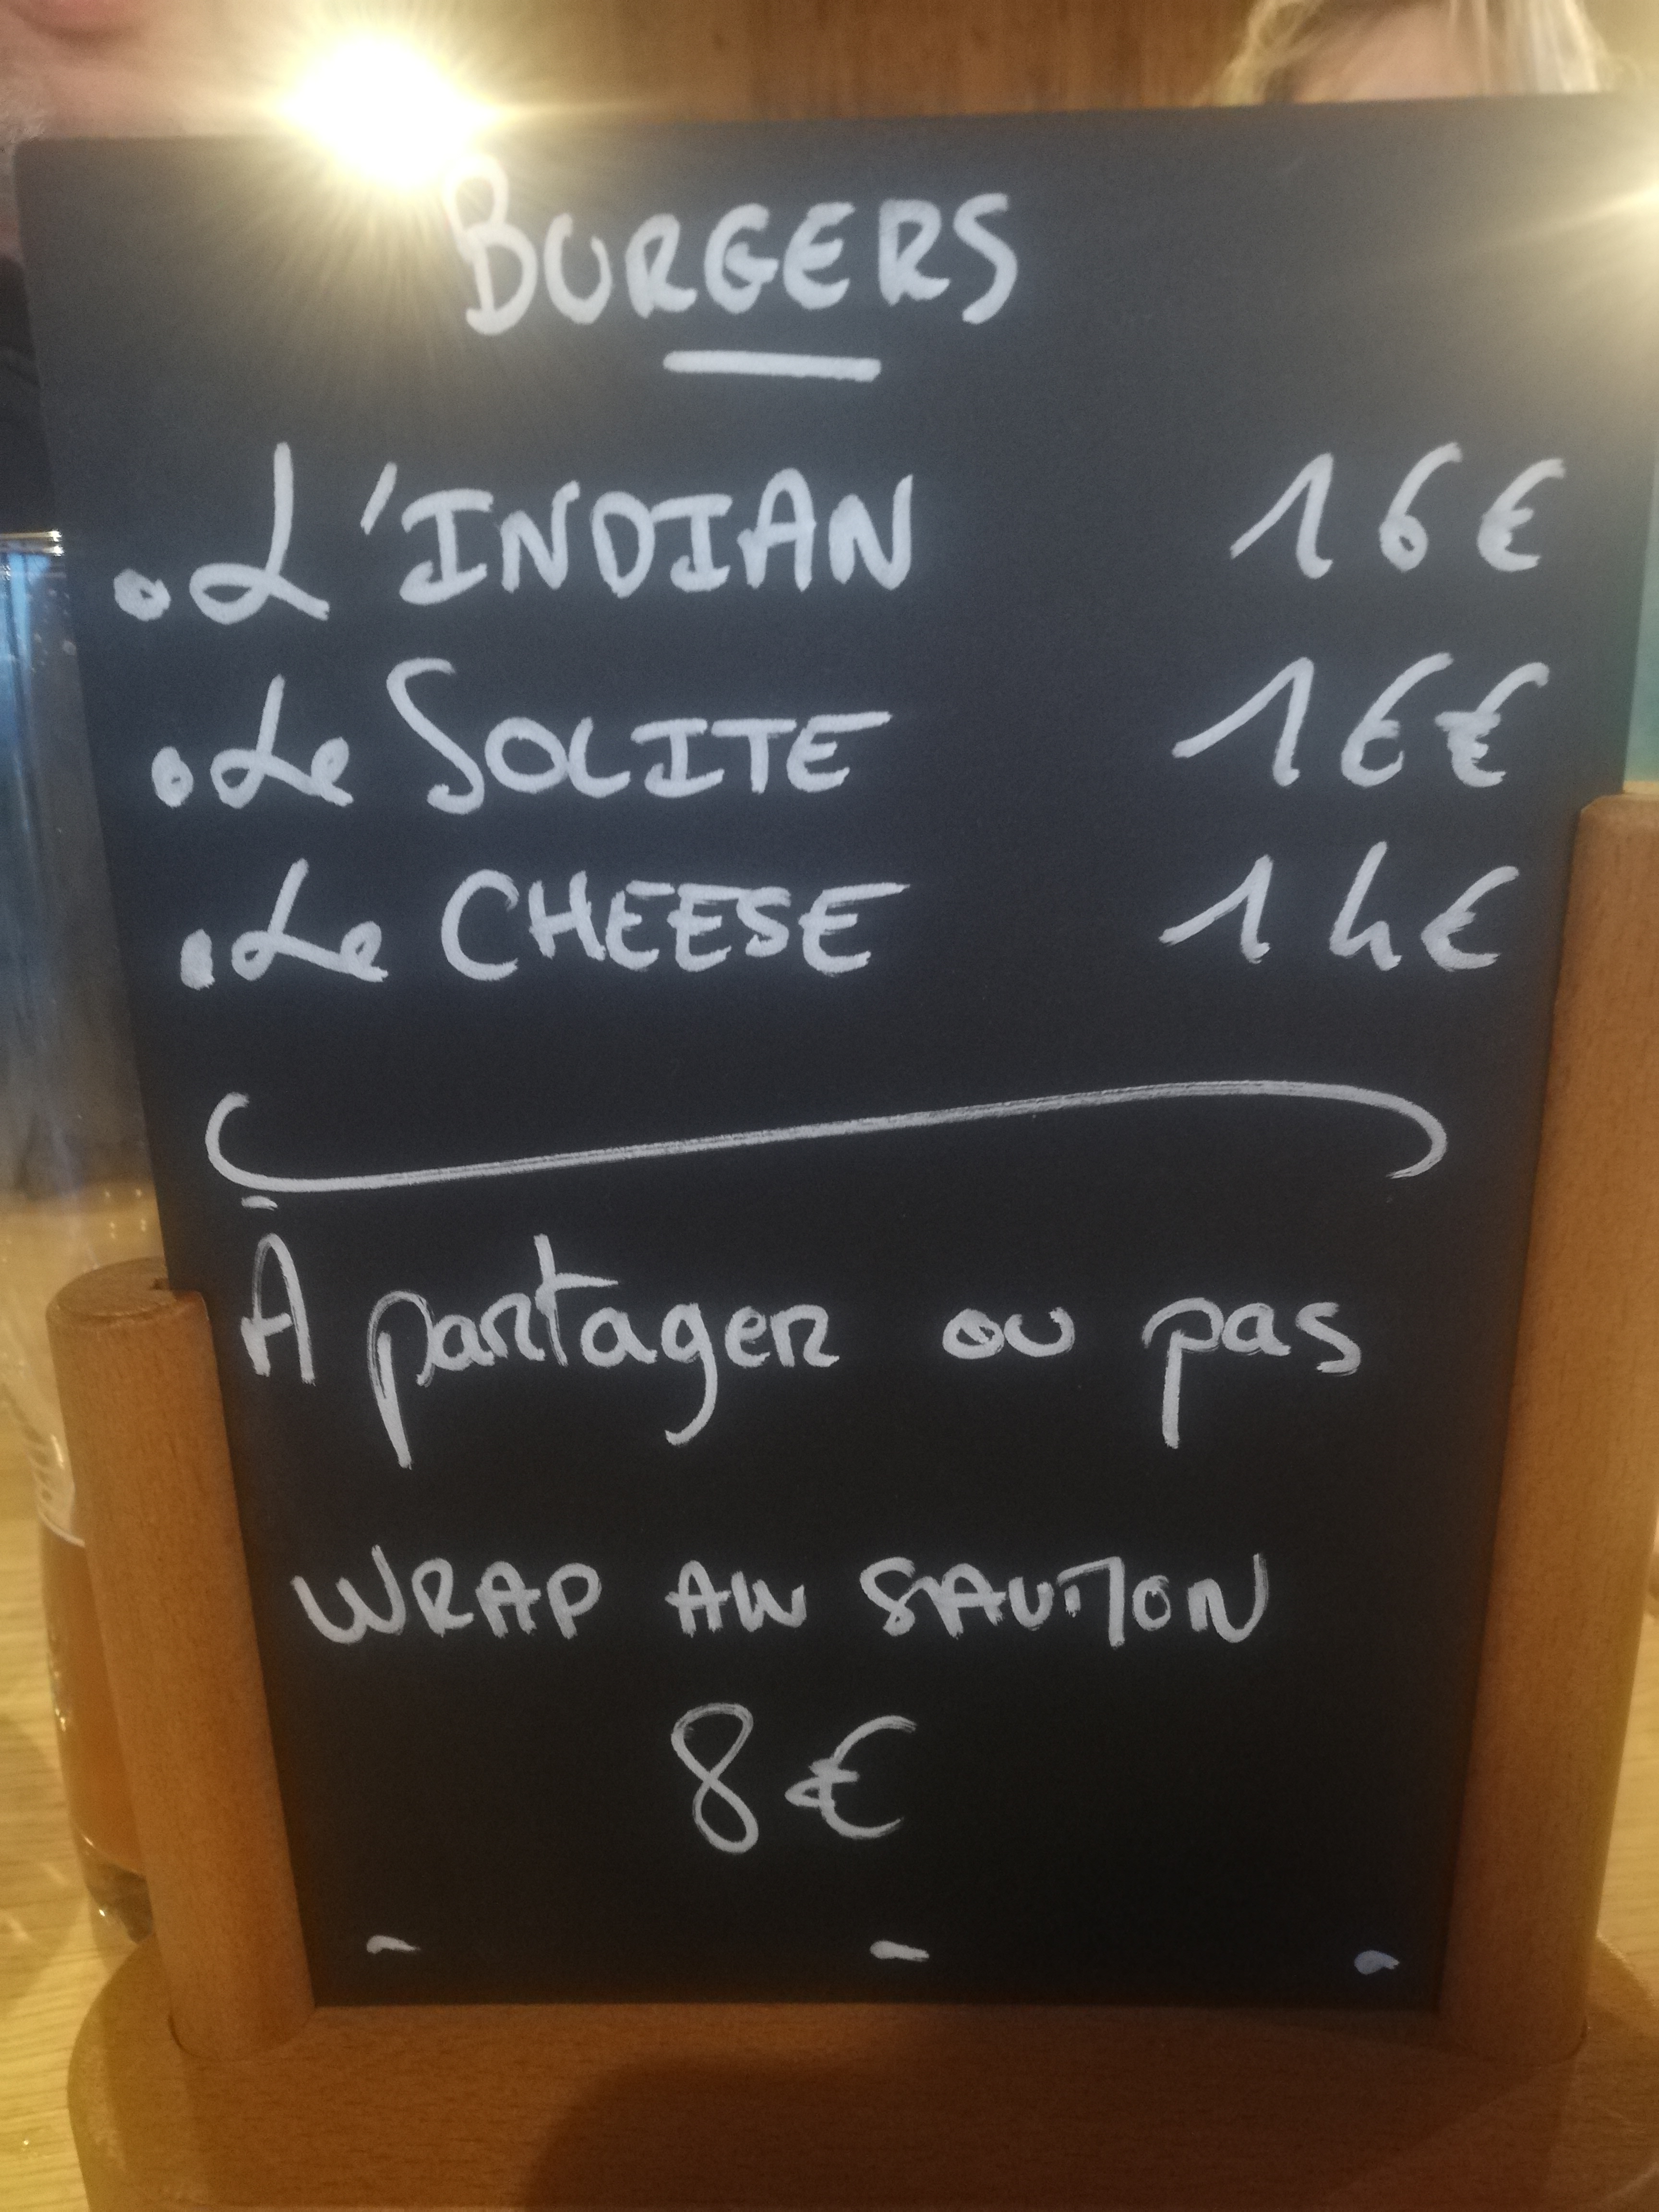 BURGERS
• L'INDIAN 16€
• Le SOLITE 16€
• Le CHEESE 14€
À partager ou pas
WRAP AU SAUMON
8€